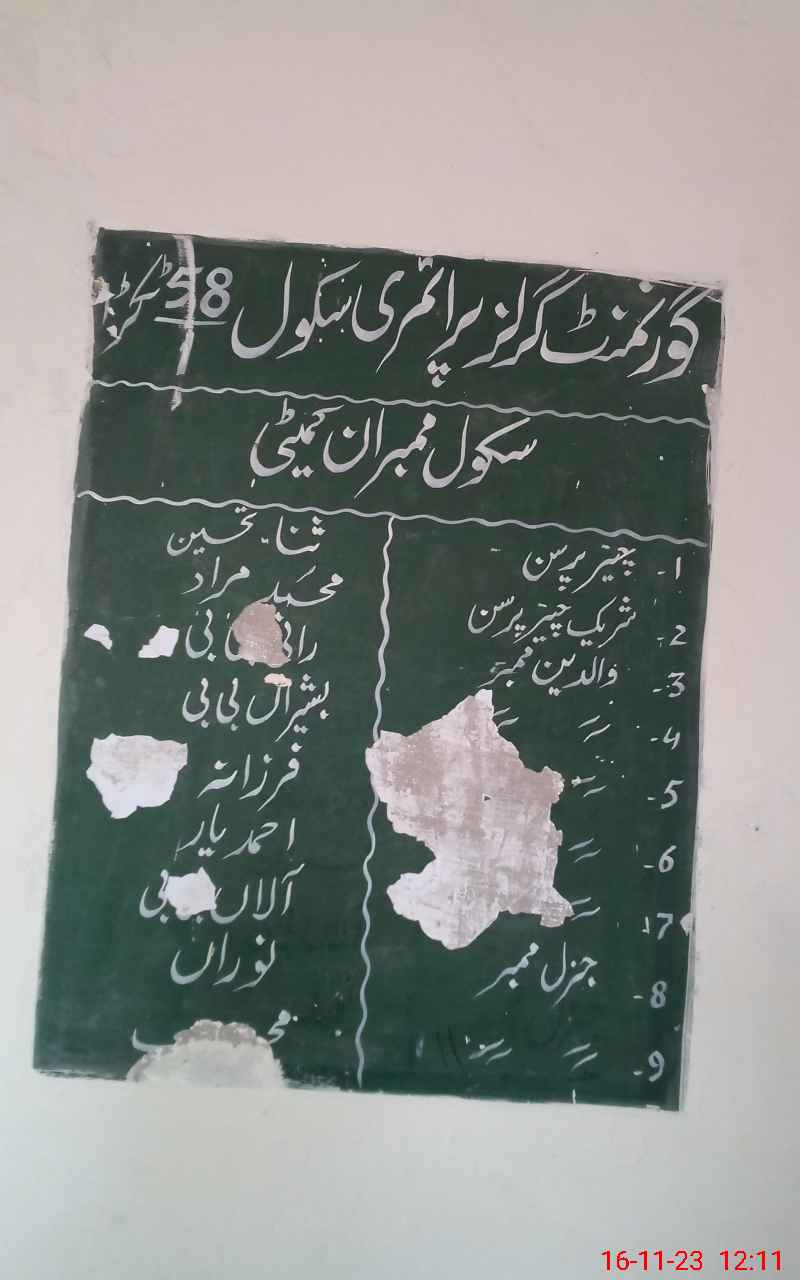 گورنمنٹ گرلز پرائمری سکول 58
سکول ممبران کمیٹی
1- چیئر پرسن ثناء تحسین
2- شریک چیئر پرسن محمد مراد
3- والدین ممبر بی
4- 〃 〃 بشیراں بی بی
5- 〃 فرزانہ
6- 〃 احمد یار
7- 〃 آلاں بی
8- جنرل ممبر نوراں
9- 〃 〃
16-11-23 12:11